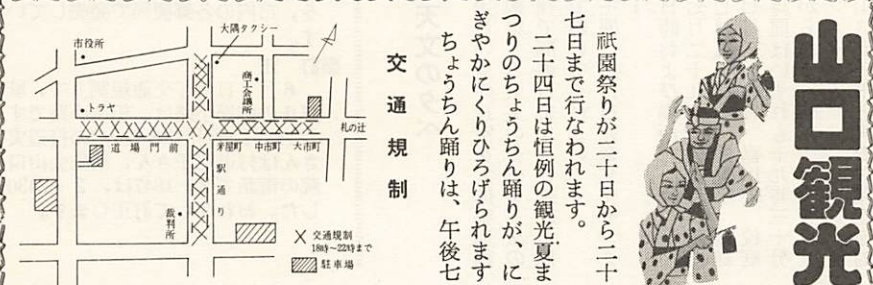 山口観光
祇園祭りが二十日から二十
七日まで行なわれます。
二十四日は恒例の観光夏ま
つりのちょうちん踊りが、に
ぎやかにくりひろげられます
ちょうちん踊りは、午後七
交通規制
大隅タクシー
市役所
商工会議所
トラヤ
札の辻
道場門前
米屋町
中市町
大市町
駅通り
裁判所
X 交通規制
18時～22時まで
駐車場